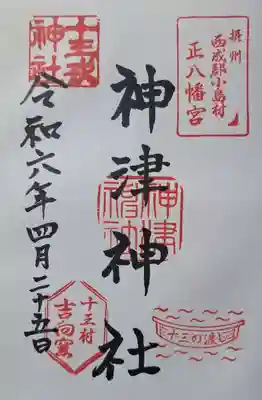 摂州
西成郡小島村
正八幡宮
十三戎
神社
神津神社
神津
神社
令和六年四月二十五日
十三村
吉向窯
十三の渡し